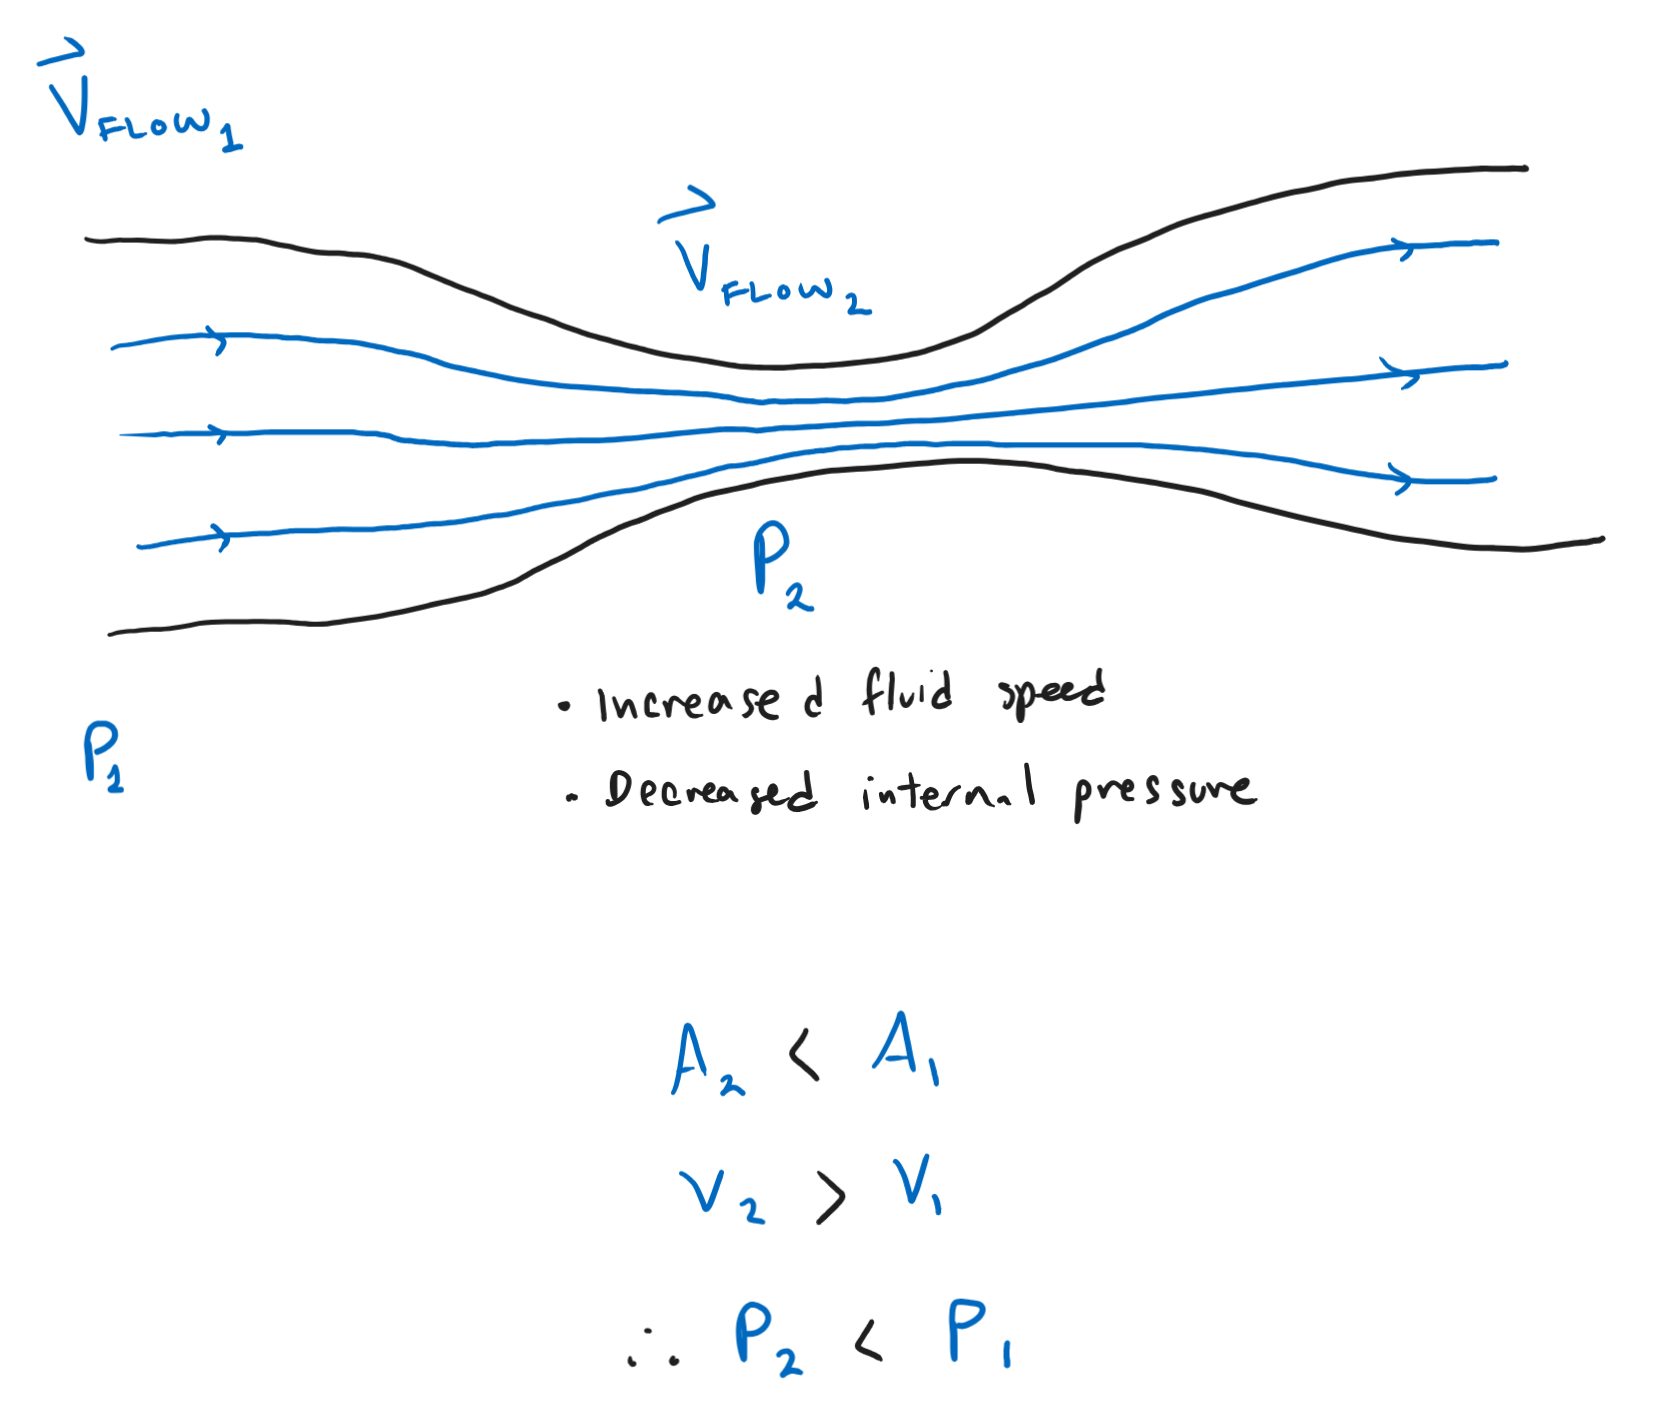 V⃗ FLOW₁
V⃗ FLOW₂
P₂
P₁
• Increased fluid speed
• Decreased internal pressure
A₂ < A₁
V₂ > V₁
∴ P₂ < P₁